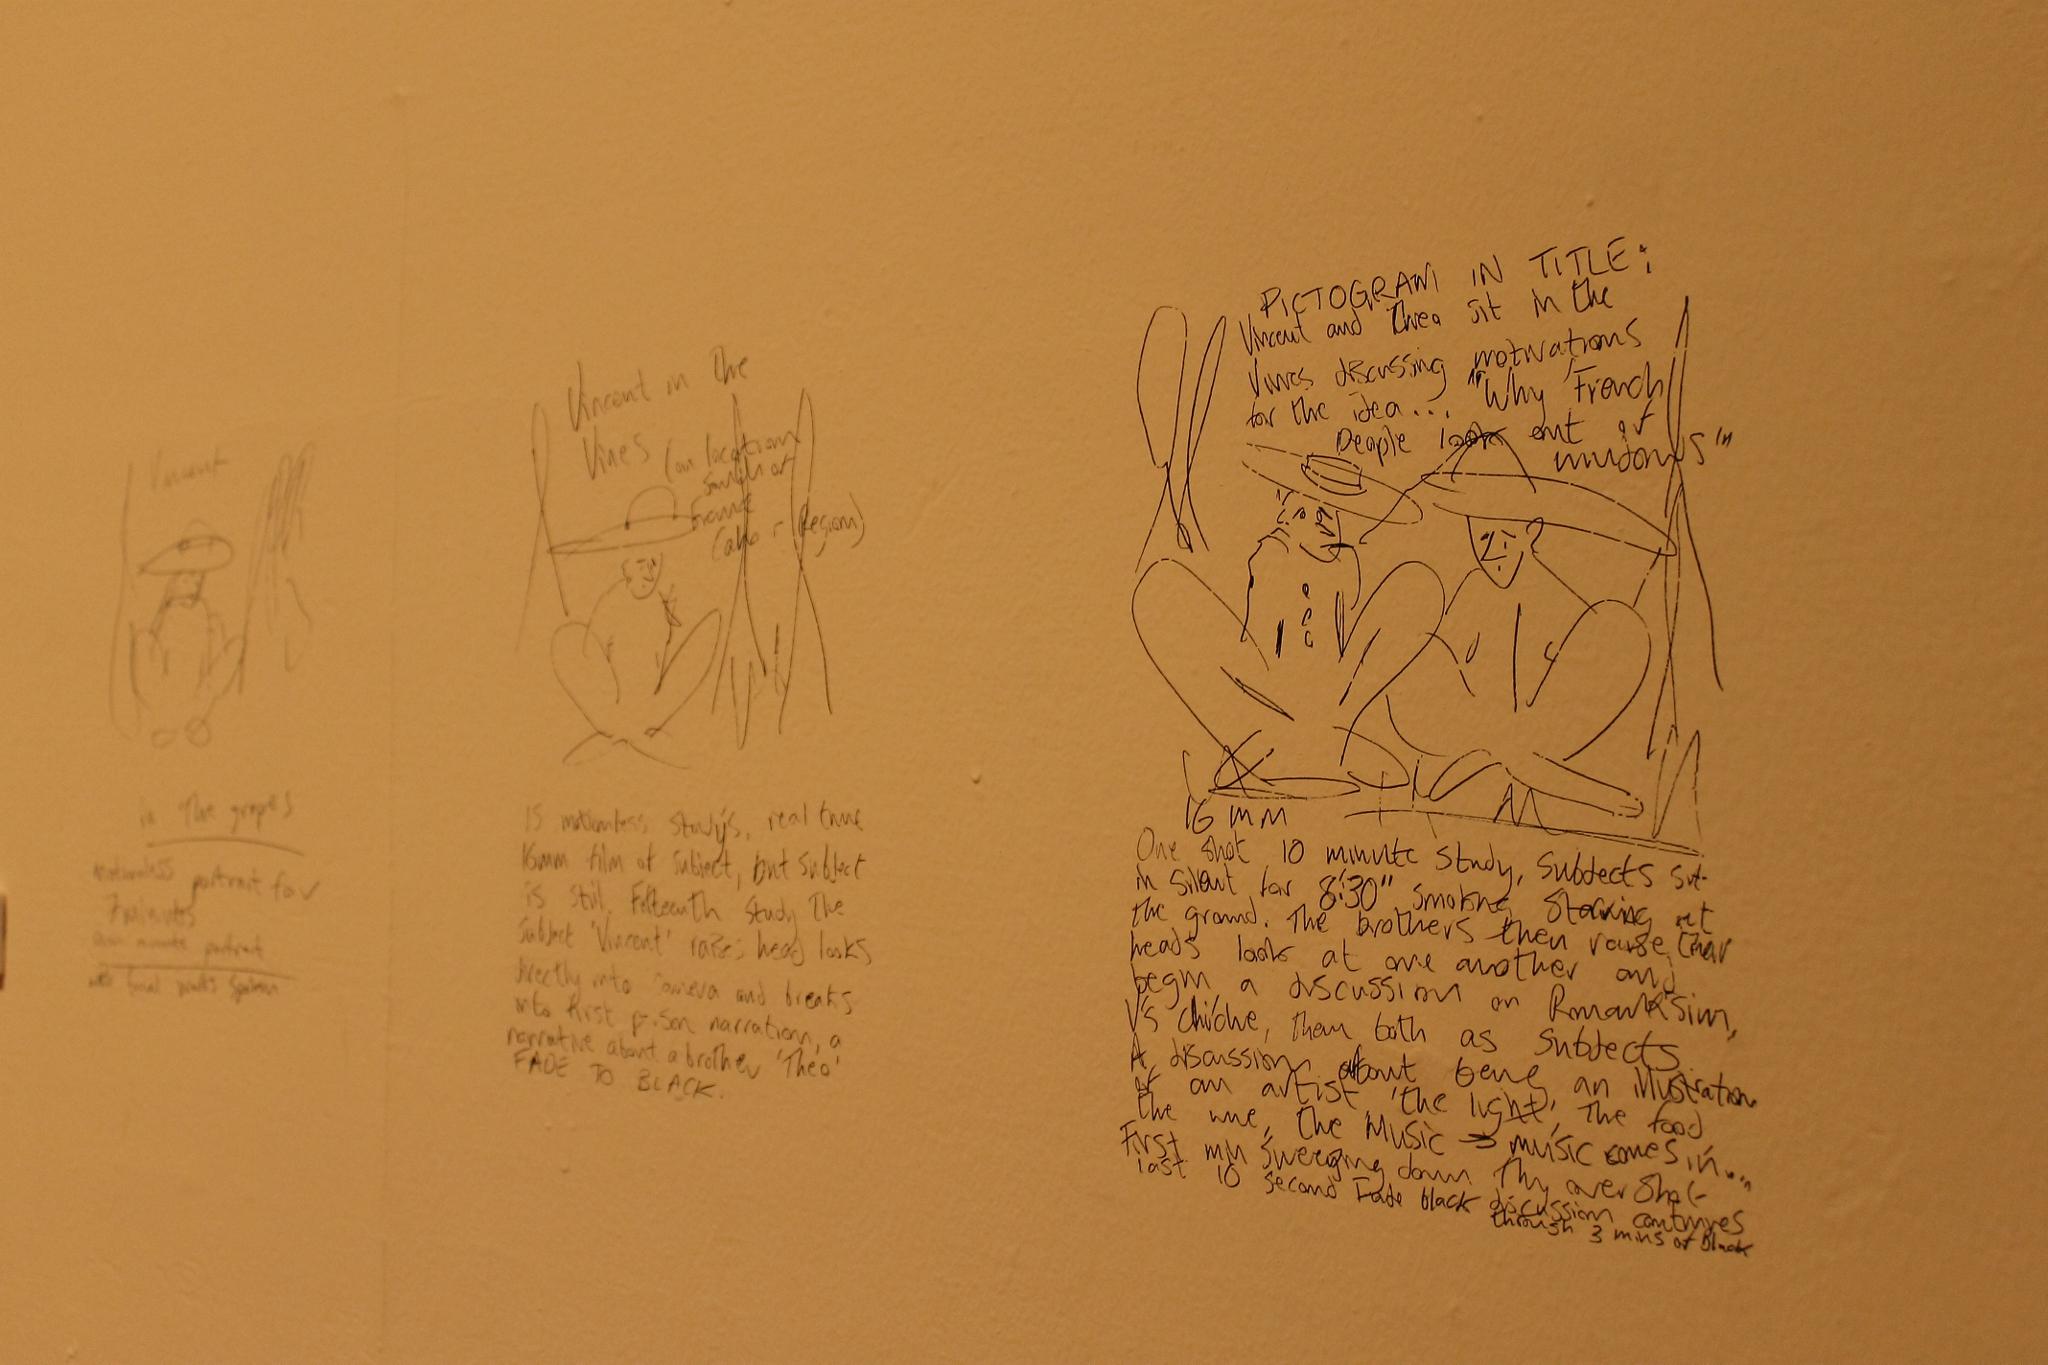 Vincent
in The grapes
motionless portrait for
7 minutes
minute portrait
Vincent in the
Vines (on location
South of
France
Region)
15 motionless studys, real time
16mm film of subject, but subject
is still. Fifteenth study the
subject 'Vincent' raises head looks
directly into camera and breaks
into first person narration, a
narrative about a brother 'Theo'
FADE TO BLACK.
PICTOGRAM IN TITLE:
Vincent and Theo sit in the
Vines discussing motivations
for the idea... "Why French
People look out of
windows"
16 MM
One shot 10 minute study, subjects sit
in silent for 8'30" smoking, staring at
the ground. The brothers then raise their
heads look at one another and
begin a discussion on
Vs cliche, them both as subjects
A discussion about being an illustration
of an artist 'the light', The food
the wine, the Music → music comes in...
First min sweeping down over shot
last 10 second Fade black discussion continues
through 3 mins of black